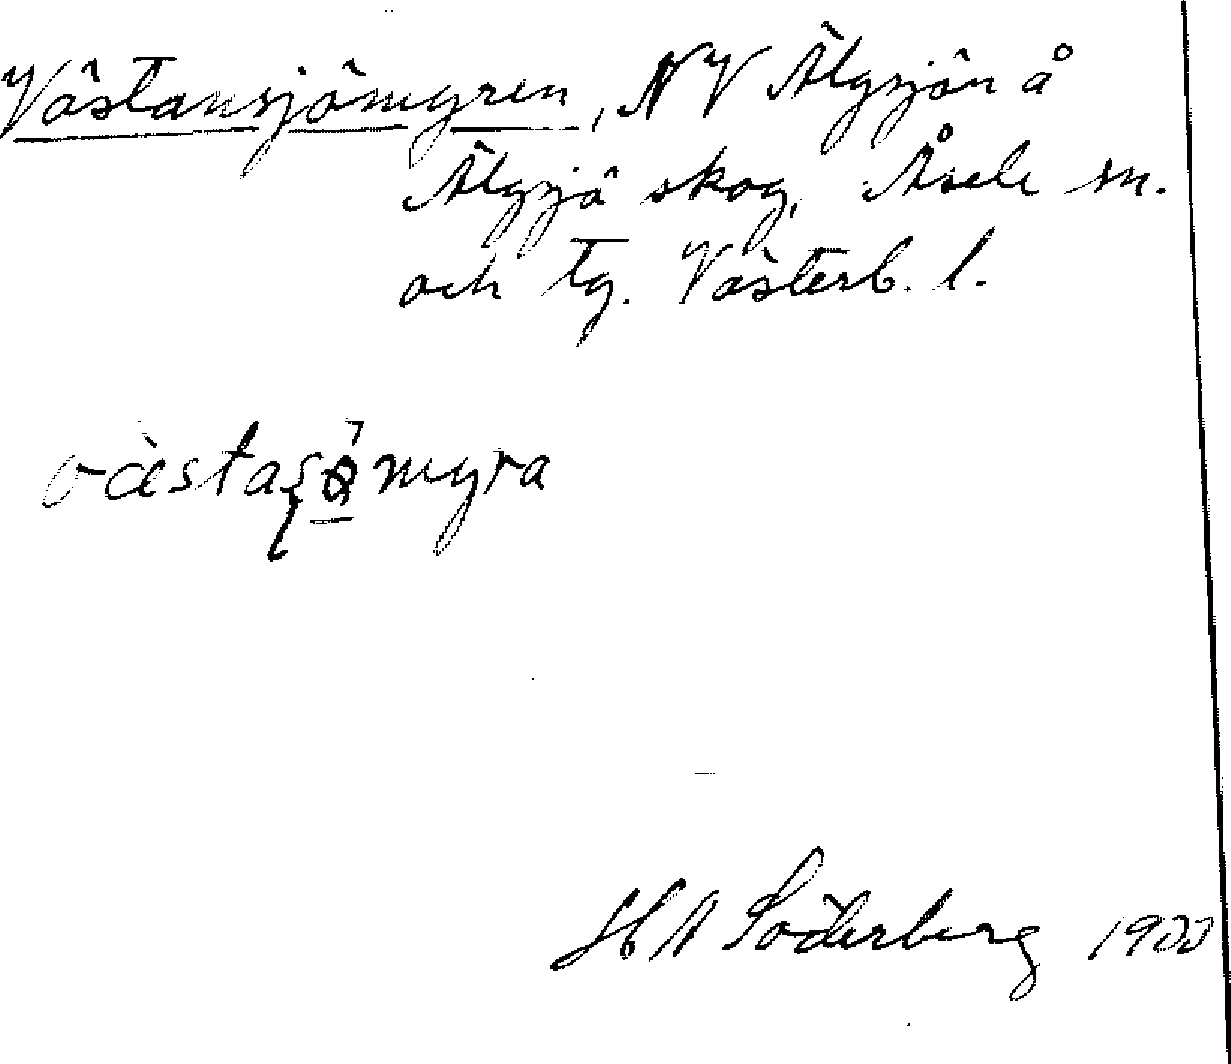 Västansjömyren, NV Älgsjön å
Älgsjö skog, Åsele sn.
och tg. Västerb. l.
västaʂömyra
H A Söderberg 1933